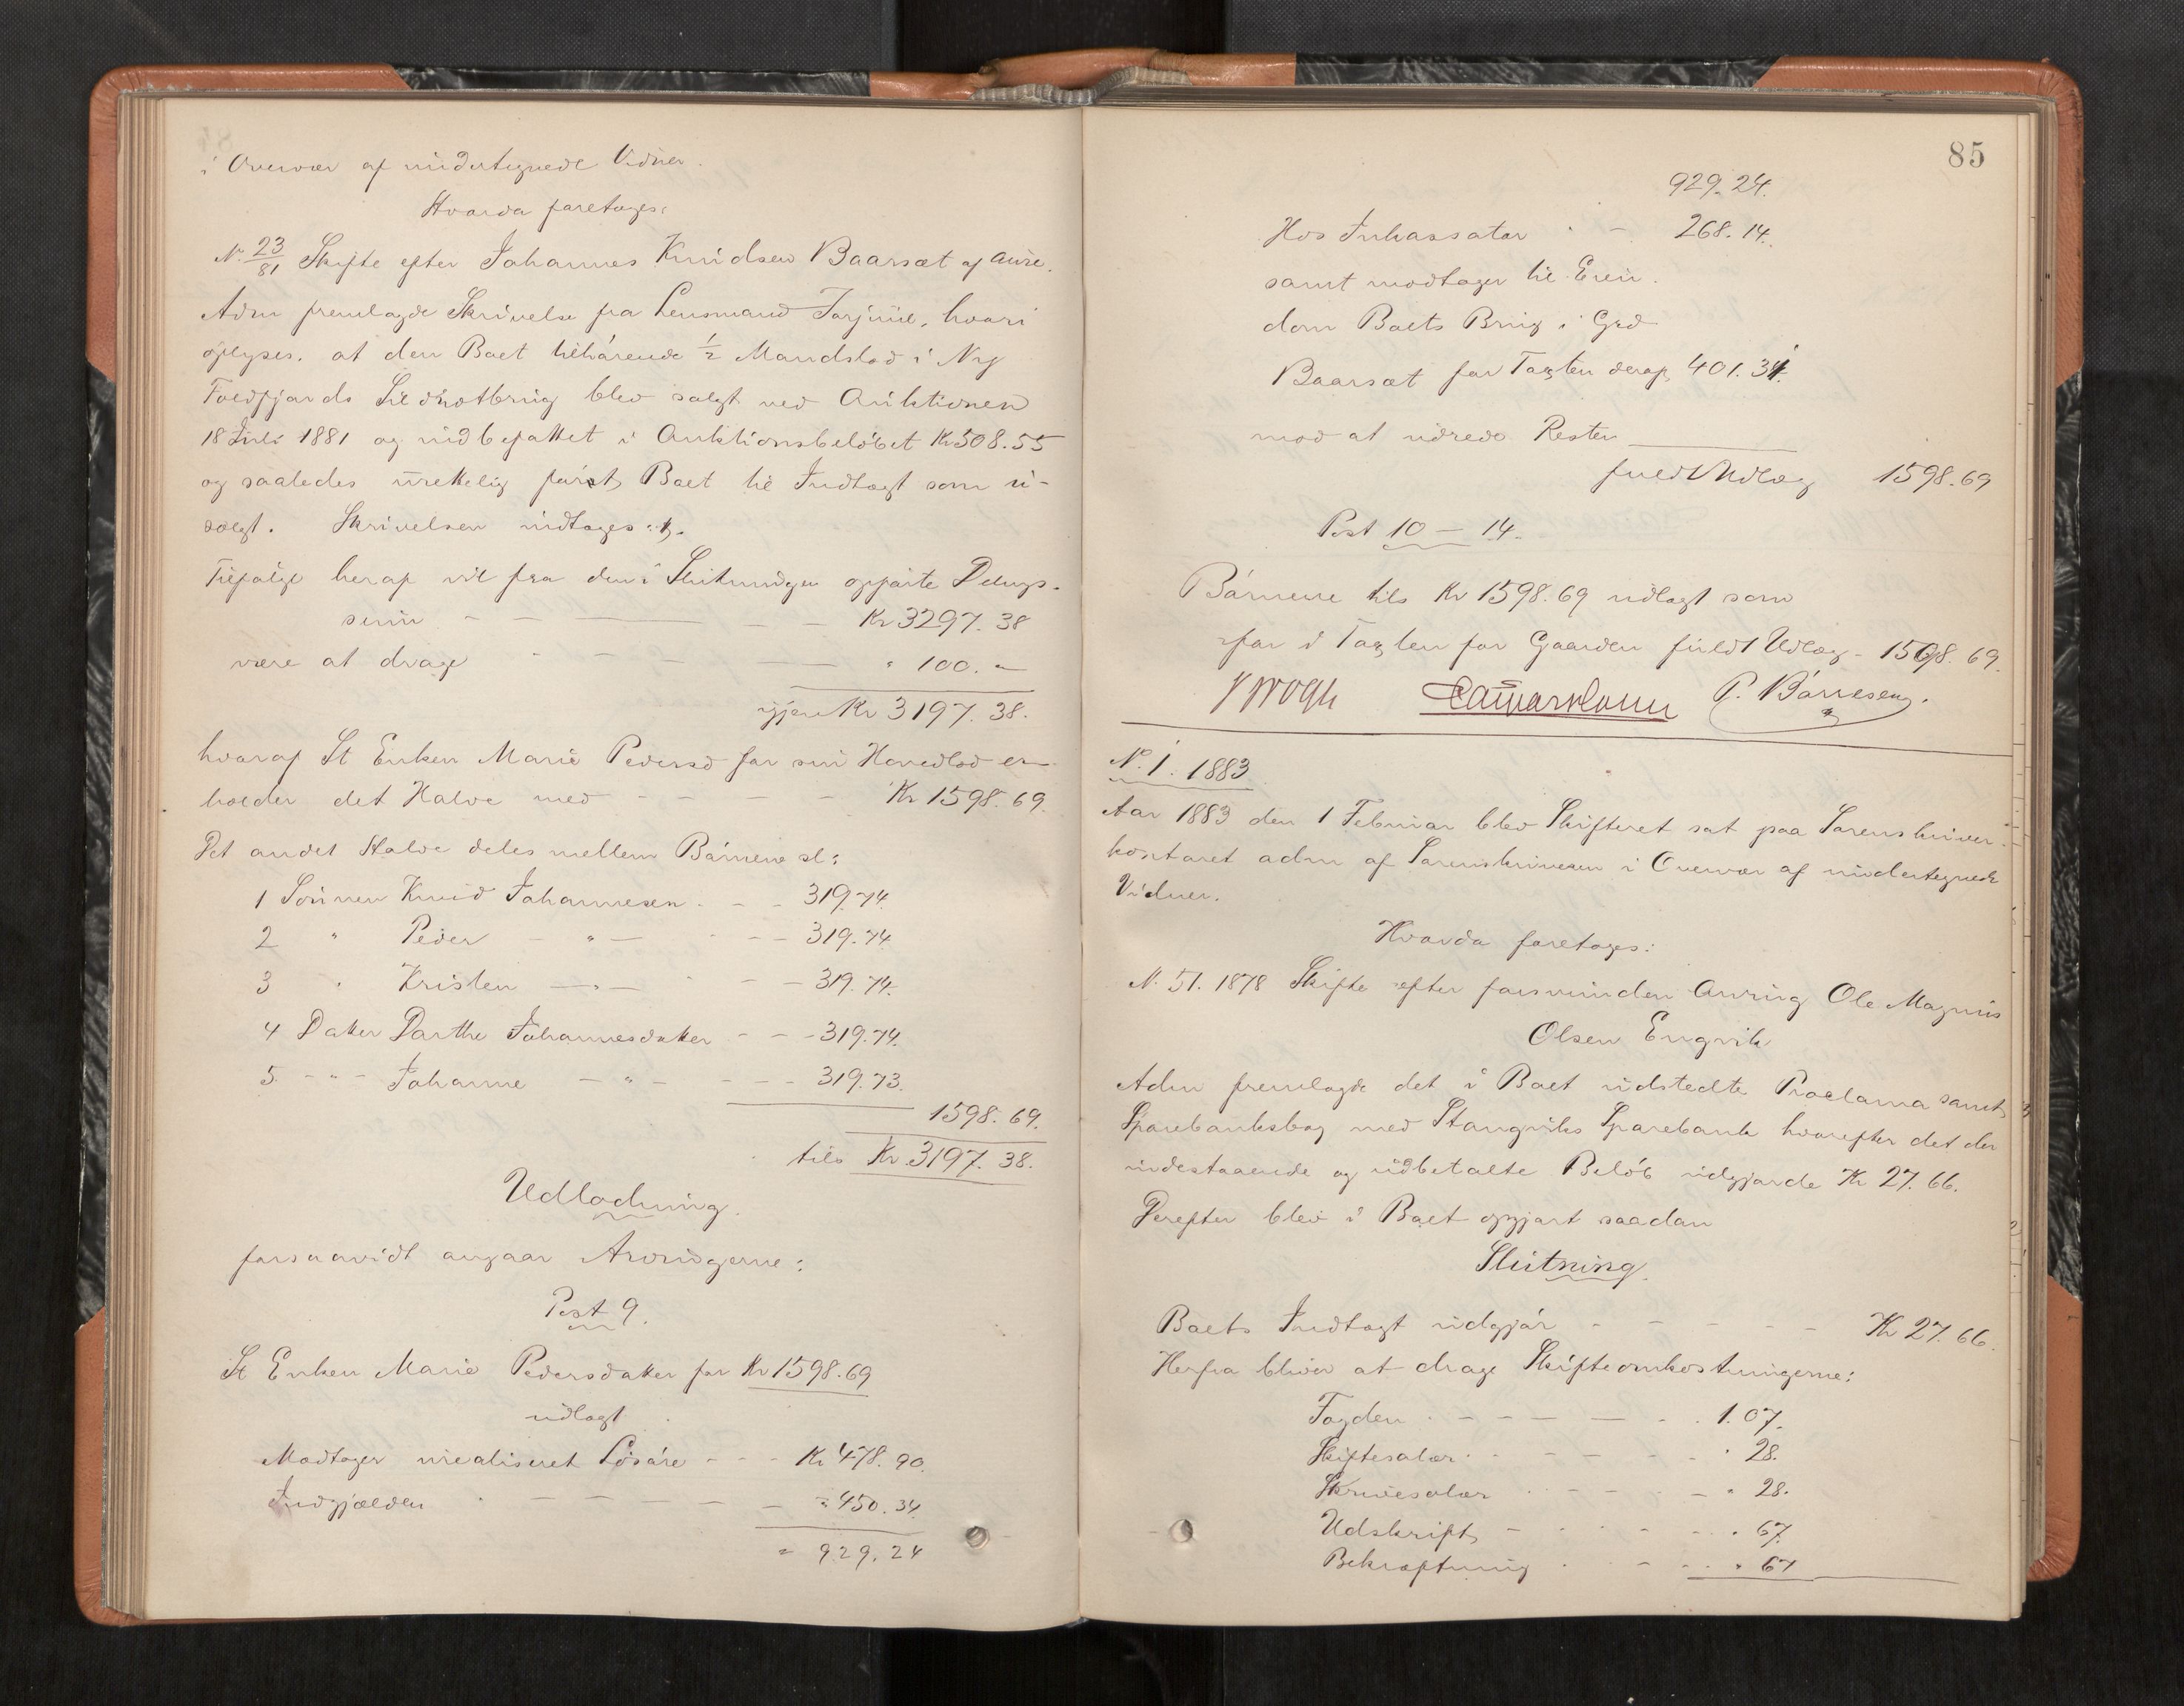 i Overvær af undertegnede Vidner.
Hvorda foretoges:
N. 23/81 Skifte efter Johannes Knudsen Baarsæt af Aure.
Adm fremlagde Skrivelse fra Lensmand, hvori
oplyses, at den Boet tilhørende 1/2 Mandslod i Ny
Foldfjords Sildnotbrug blev solgt ved Auktionen
18 Juli 1881 og indbefattet i Auktionsbeløbet Kr 508.55
og saaledes urettelig ført Boet til Indtægt som u-
solgt. Skrivelsen indtages.
Tilfølge heraf vil fra den i Slutningen opførte Delings-
sum - - - - Kr 3297.38
være at drage - - - - " 100. "
igjen Kr 3197.38.
hvoraf St Enken Marie Pedersd for sin Hovedlod er-
holder det Halve med - - - - Kr 1598.69.
Det andet Halve deles mellem Børnene sl:
1 Sønnen Knud Johannesen - - 319.74.
2 " Peder - " - - - 319.74.
3 " Kristen - " - - - 319.74.
4 Datter Dorthe Johannesdatter - - - 319.74.
5 - " - Johanne - " - - - - 319.73.
1598.69.
tils Kr 3197.38.
Udlodning.
forsaavidt angaar Arvingerne:
Post 9.
St Enken Marie Pedersdatter for Kr 1598.69
udlagt
Modtager urealiseret Løsøre - - - Kr 478.90.
Indgjælden - - - - " 450.34.
" 929.24
85
929.24.
Hos Inkassator " - 268.14.
samt modtager til Eien.
dom Boets Brug i Grd
Baarsæt for Taxten deraf 401.31.
mod at udrede Resten
fuldt Udlæg 1598.69
Post 10 — 14.
Børnene tils Kr 1598.69 udlagt som
for i Taxten for Gaarden fuldt Udlæg - 1598.69.
P. Børresen.
No. 1. 1883
Aar 1883 den 1 Februar blev Skifteret sat paa Sorenskriver-
kontoret adm af Sorenskriveren i Overvær af undertegnede
Vidner.
Hvorda foretoges:
N. 51. 1878 Skifte efter forsvunden Arving Ole Magnus
Olsen Engvik
Adm fremlagde det i Boet udstedte Proclama samt
Sparebanksbog med Stangviks Sparebank hvorefter det der
indestaaende og udbetalte Beløb udgjorde Kr 27.66.
Derefter blev i Boet opgjort saadan
Slutning.
Boets Indtægt udgjør - - - - - Kr 27.66.
Herfra bliver at drage Skifteomkostningerne:
Fogden - - - - - 1.07.
Skiftesalær - - - - " 28.
Skrivesalær - - - " 28.
Udskrift - - - - " 67.
Bekræftning - - - " 67